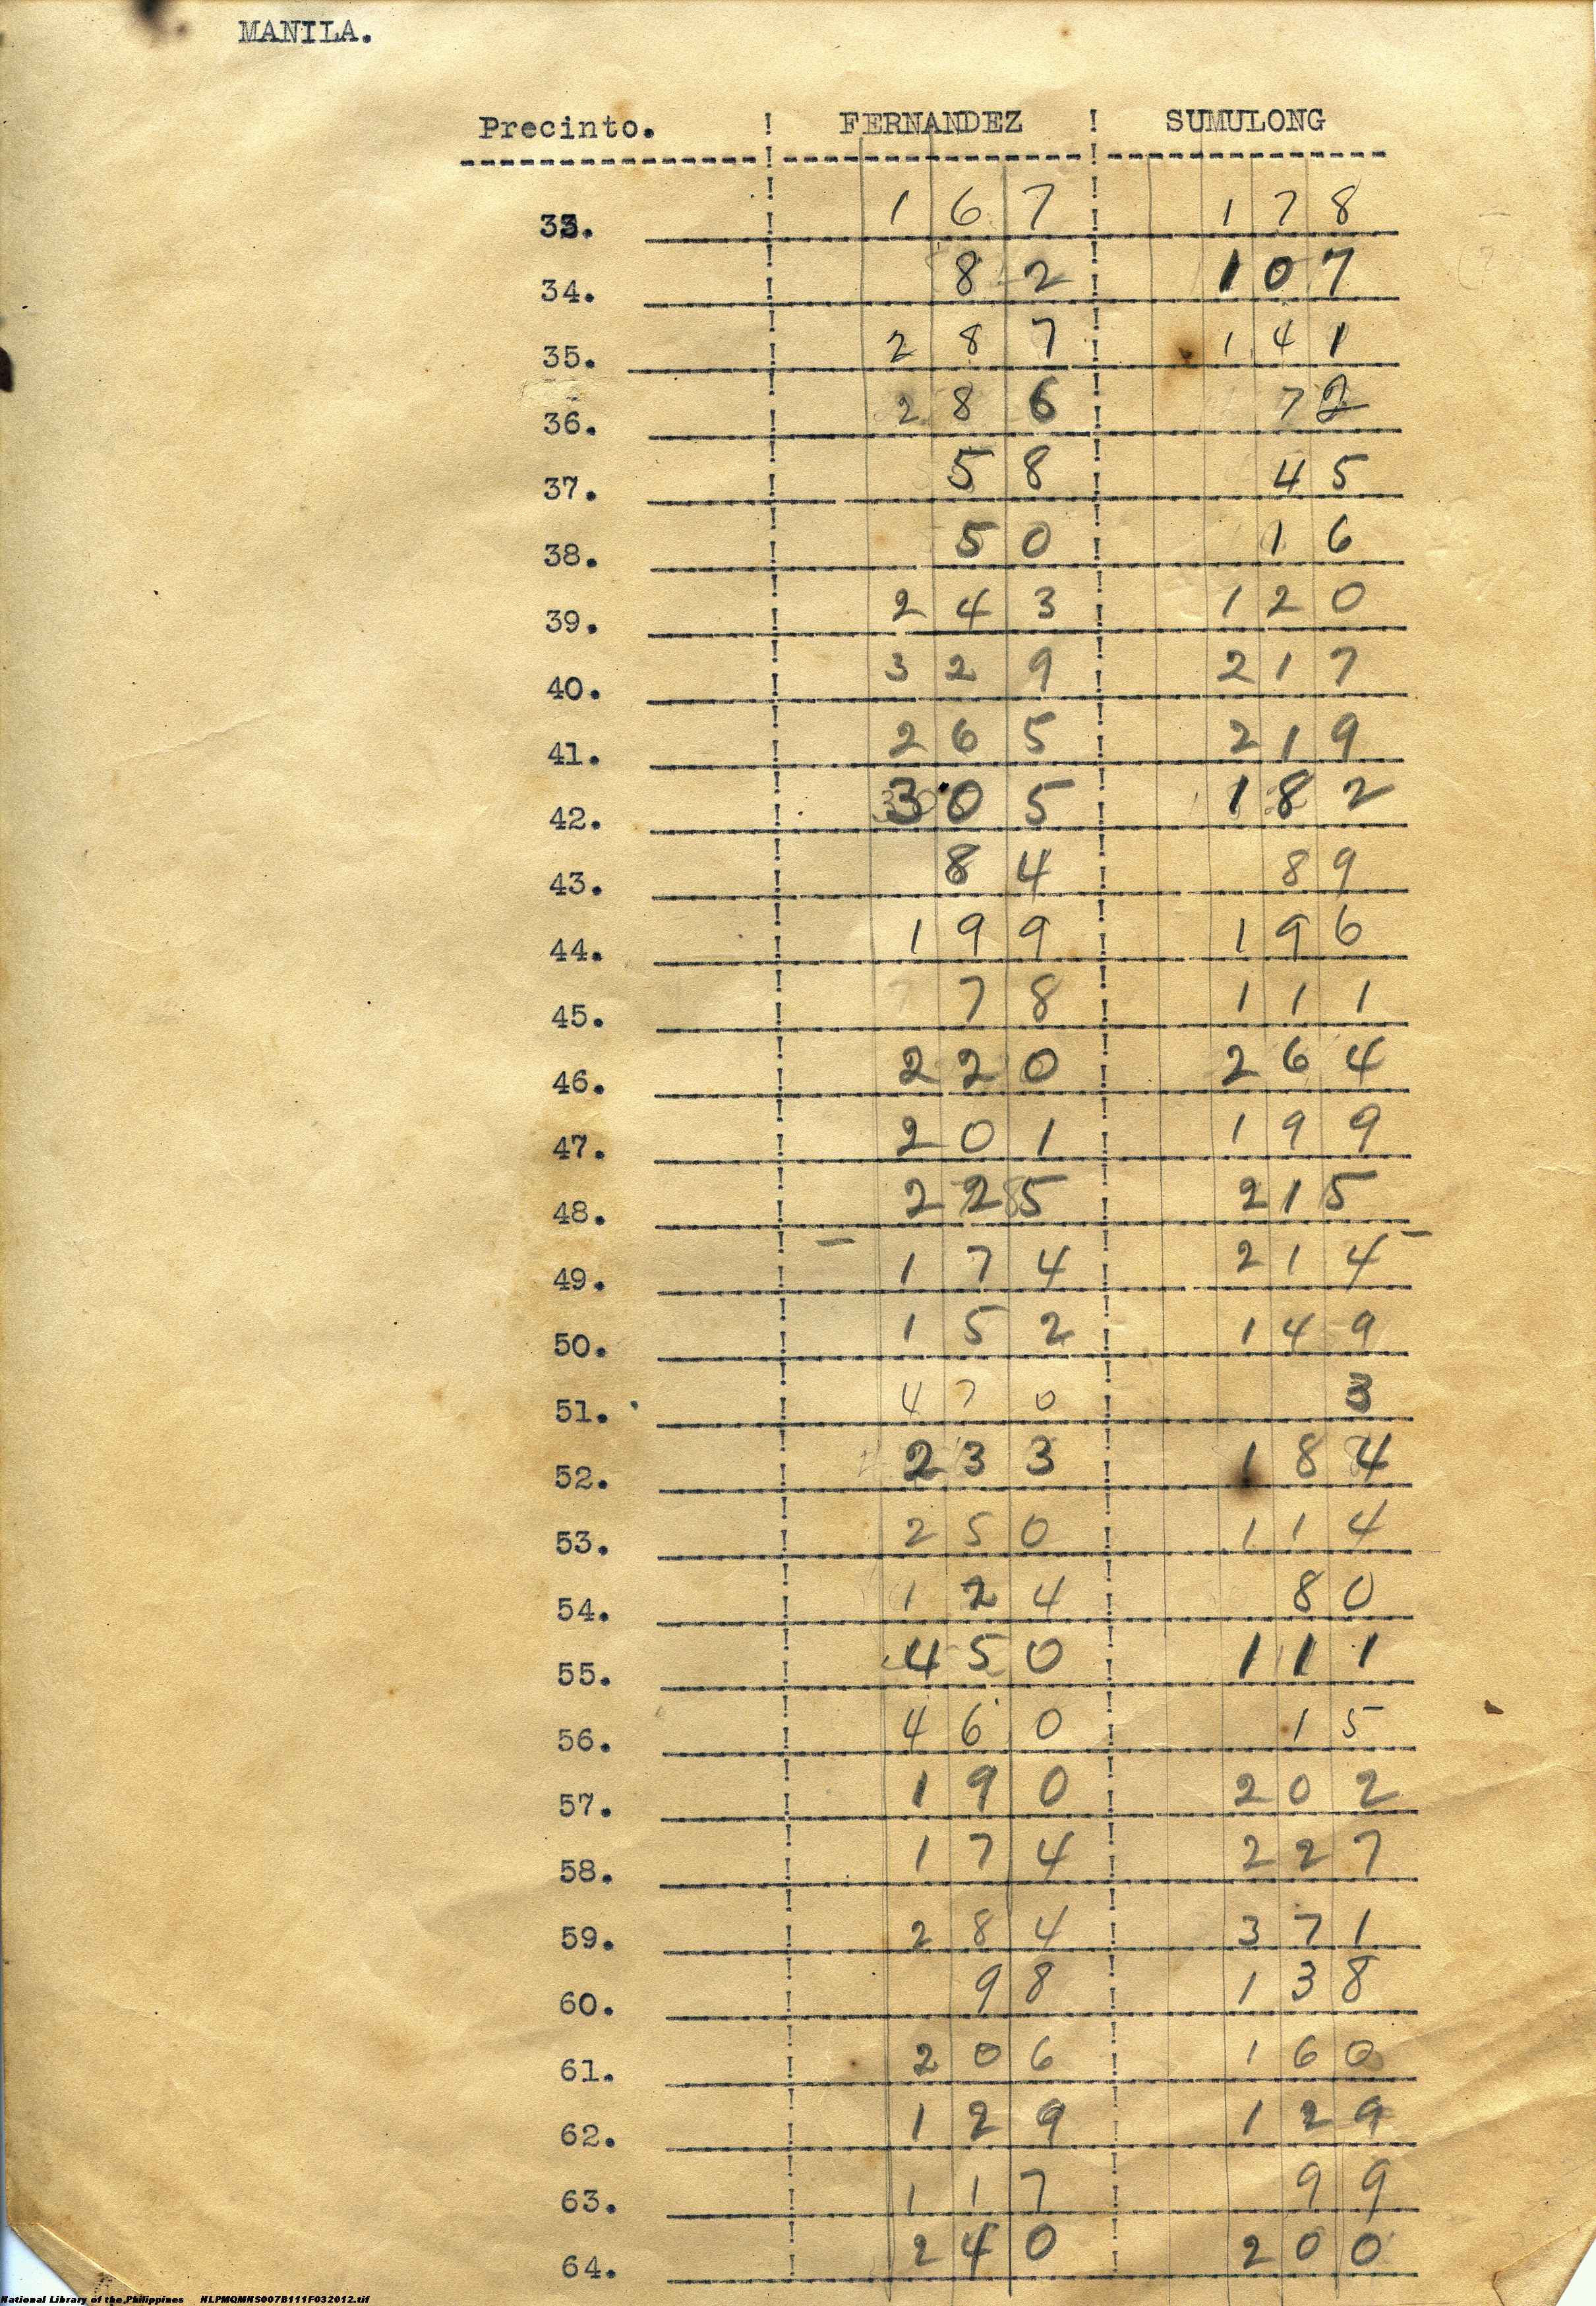 MANILA.
Precinto. ! FERNANDEZ ! SUMULONG
33. 167 178
34. 82 107
35. 287 141
36. 286 72
37. 58 45
38. 50 16
39. 243 120
40. 329 217
41. 265 219
42. 305 182
43. 84 89
44. 199 196
45. 78 111
46. 220 264
47. 201 199
48. 225 215
49. 174 214
50. 152 149
51. 470 3
52. 233 184
53. 250 114
54. 124 80
55. 450 111
56. 460 15
57. 190 202
58. 174 227
59. 284 371
60. 98 138
61. 206 160
62. 129 129
63. 117 99
64. 240 200
National Library of the Philippines NLPMQMNS007B111F032012.tif